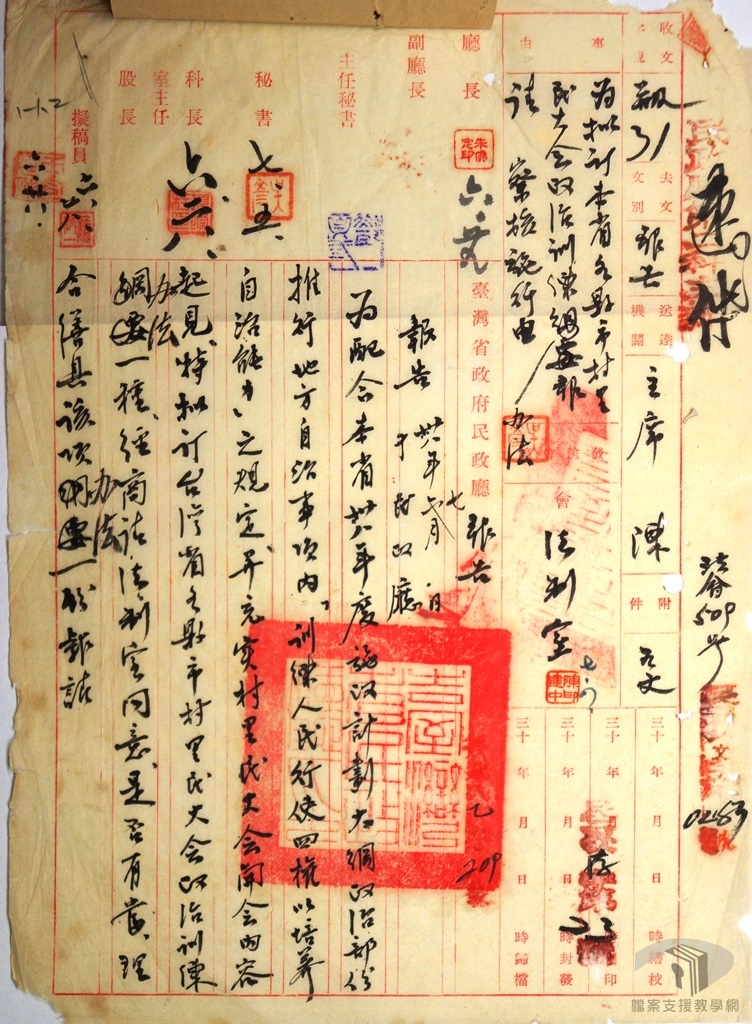 收文
去文
文別
報告
送達
機關
主席 陳
附件
法會509号
事由
為拟訂本省各縣市村里
民大会政治訓練綱要報
办法
請 察核施行由
會
法制室
三十 年 月 日 時繕校
三十 年 月 日 時 印
三十 年 月 日 時封發
三十 年 月 日 時歸檔
廳長
副廳長
主任秘書
秘書
七、五、
科長
六、六、
室主任
股長
擬稿員
臺灣省政府民政廳 報告
報告 卅八年七月 日
于民政廳
為配合本省卅八年度施政計劃大綱政治部份
推行地方自治事項內「訓練人民行使四權以培养
自治能力」之規定并充实村里民大会開会內容
起見、特拟订台湾省各縣市村里民大会政治訓練
办法
綱要一種、經商請法制室同意、是否有當、理
办法
合繕具該項綱要一份報請
乙
209
檔案支援教學網